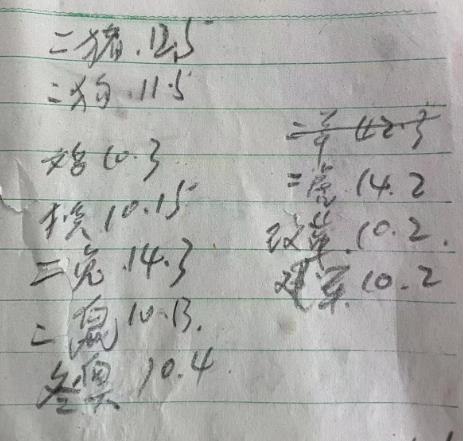 二猪.12.5
二狗.11.5
10.3
10.15
二兔.14.3
二鼠10.13.
10.4
二羊 12.3
二虎.14.2
改革.10.2.
建军.10.2